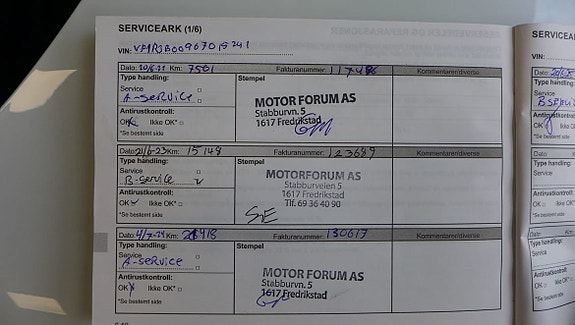 SERVICEARK (1/6)
VIN:
Dato: 20/6-21 Km: 7501 Fakturanummer: Kommentarer/diverse
Type handling:
Service
A-service
Antirustkontroll:
OK Ikke OK*
*Se bestemt side
Stempel
MOTOR FORUM AS
Stabburvn. 5
1617 Fredrikstad
Dato: 21/6-23 Km: 15148 Fakturanummer: 123689 Kommentarer/diverse
Type handling:
Service
B-service
Antirustkontroll:
OK Ikke OK*
*Se bestemt side
Stempel
MOTORFORUM AS
Stabburveien 5
1617 Fredrikstad
Tlf. 69 36 40 90
Dato: 4/7-24 Km: Fakturanummer: 130617 Kommentarer/diverse
Type handling:
Service
A-service
Antirustkontroll:
OK Ikke OK*
*Se bestemt side
Stempel
MOTOR FORUM AS
Stabburvn. 5
1617 Fredrikstad
SERVICEARK
VIN:
Dato:
Type handling:
Service
Antirustkontroll:
OK Ikke OK*
*Se bestemt side
Type handling:
Service
Antirustkontroll:
*Se bestemt side
Dato:
Type handling:
Service
Antirustkontroll:
OK Ikke OK*
*Se bestemt side